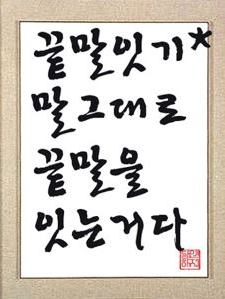 끝말잇기*
말그대로
끝말을
잇는거다